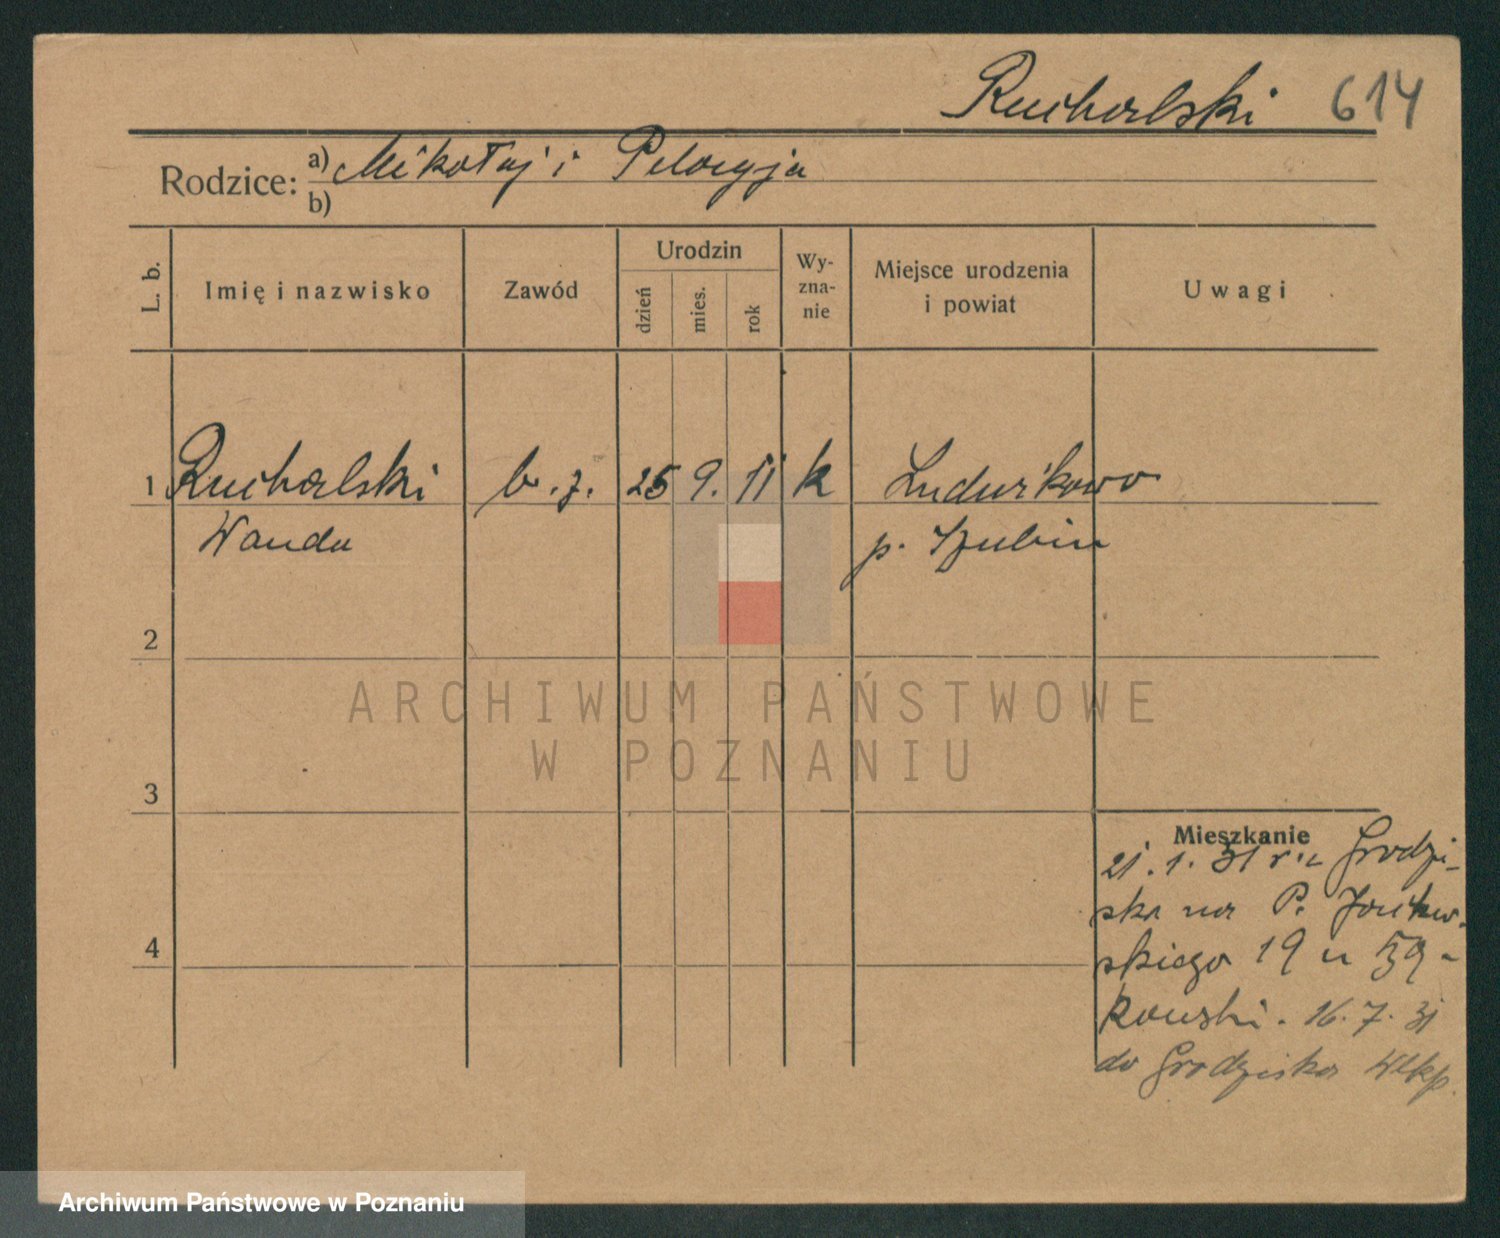 Rucholski 614
Rodzice: a) Mikołaj i Pelagja
b)
L. b. Imię i nazwisko Zawód Urodzin dzień mies. rok Wy-zna-nie Miejsce urodzenia i powiat Uwagi
1 Rucholski b. z. 25 9. 11 k Ludwikowo
Wanda p. Szubin
2
ARCHIWUM PAŃSTWOWE
W POZNANIU
3
Mieszkanie
21. 1. 31 r. z Grodzi-
ska na P.
skiego 19 u
kowski. 16. 7. 31
4
do Grodziska Wlkp.
Archiwum Państwowe w Poznaniu